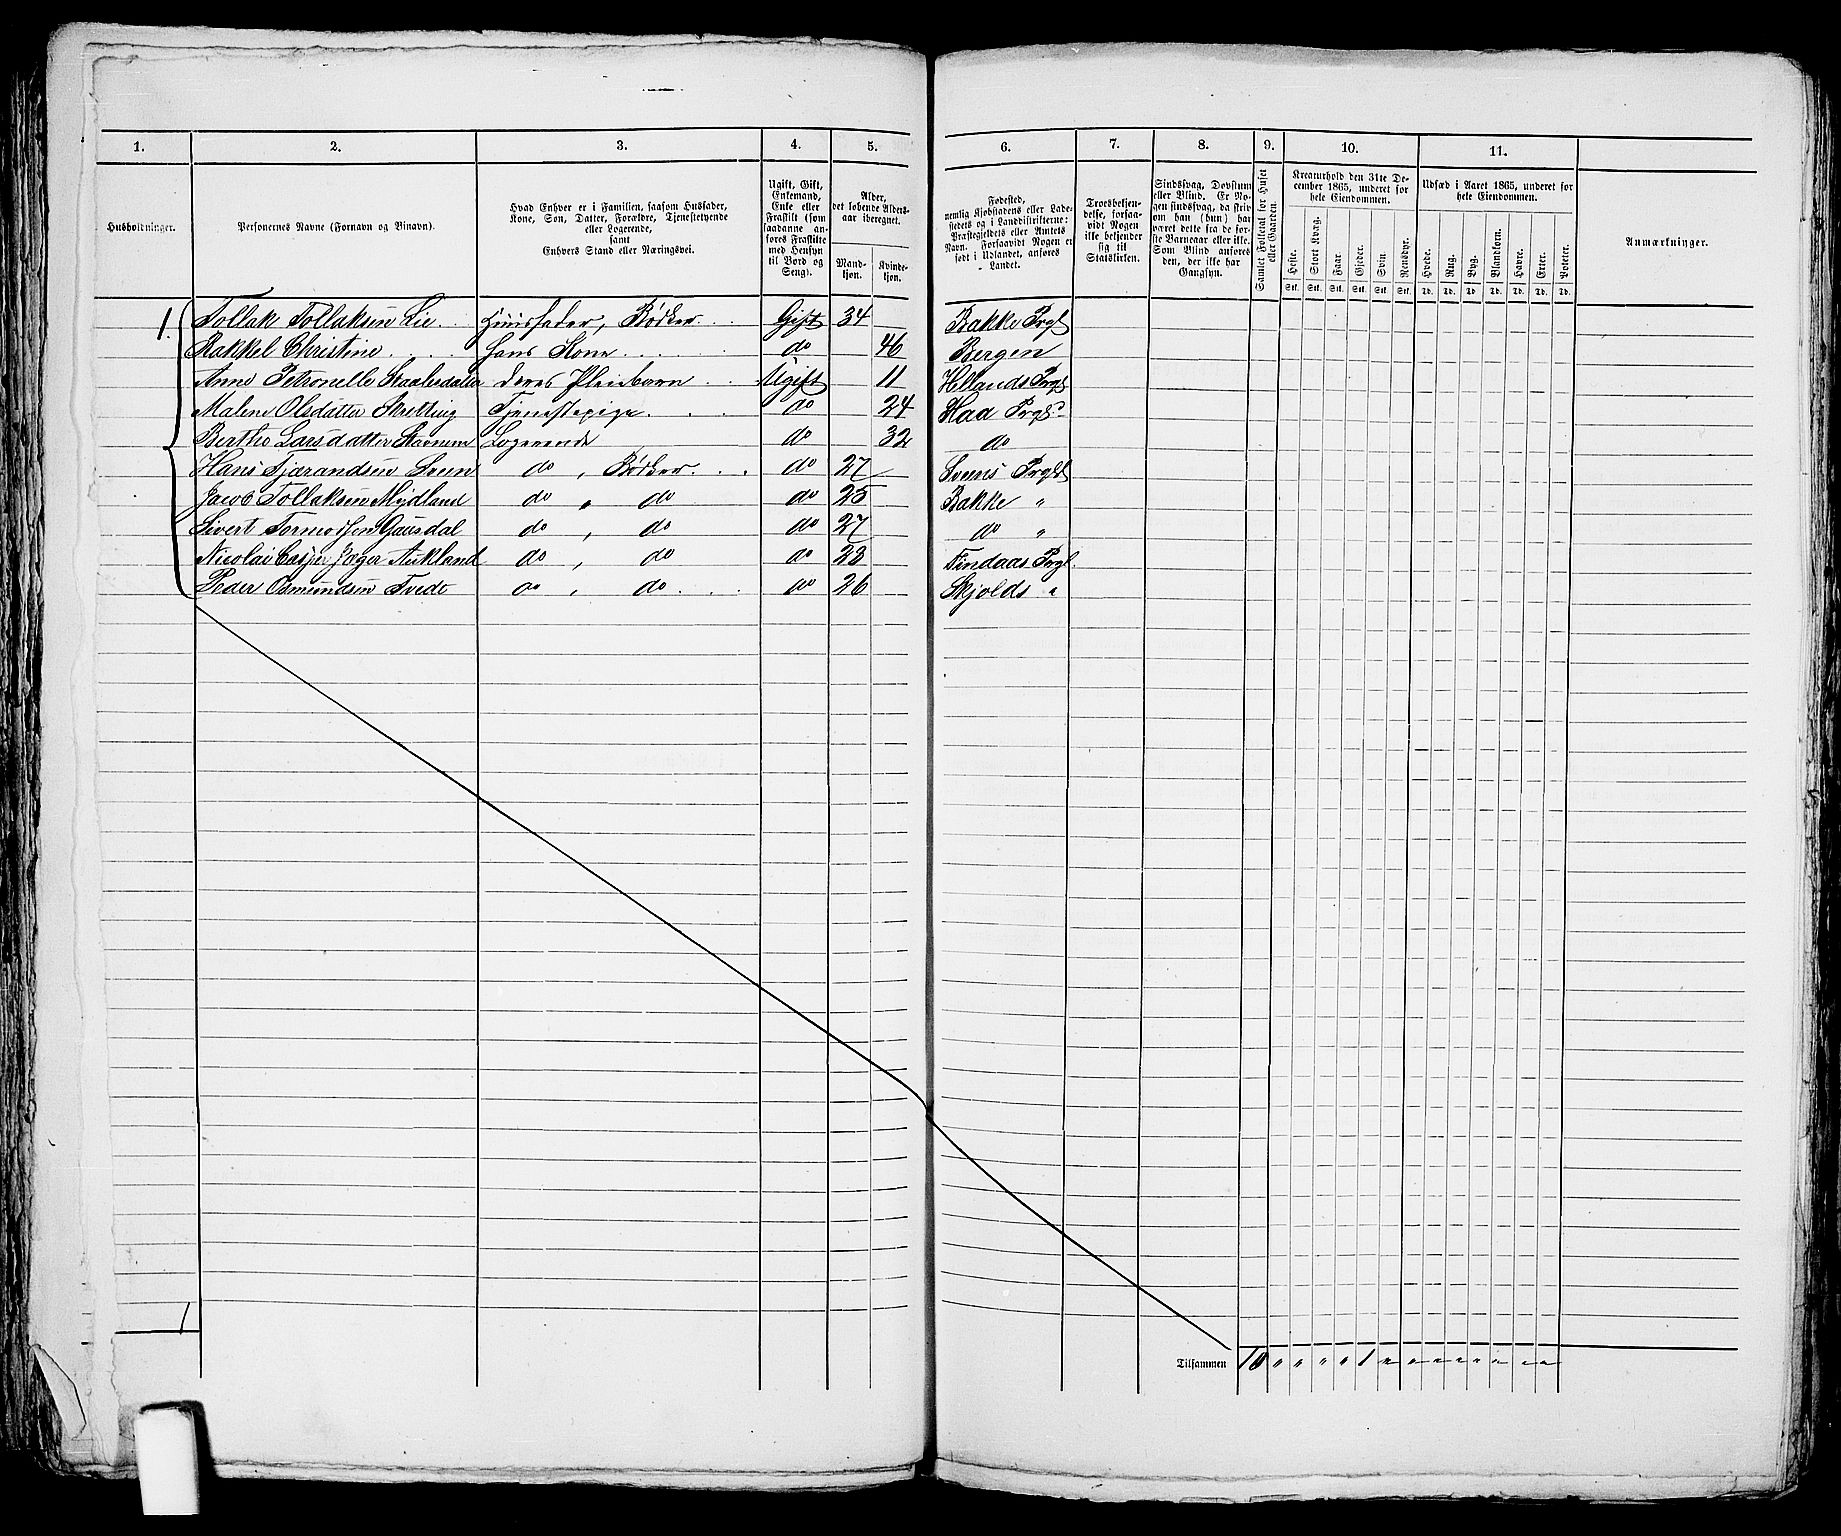 1. 2. 3. 4. 5. 6. 7. 8. 9. 10. 11.
Husholdninger.
Personernes Navne (Fornavn og Tilnavn).
Hvad Enhver er i Familien, saasom Husfader, Kone, Søn, Datter, Forældre, Tjenestetyende eller Logerende, samt Enhvers Stand eller Næringsvei.
Ugift, Gift, Enkemand, Enke eller Fraskilt (som saadanne anføres Fraskilte med Hensyn til Bord og Seng).
Alder, det løbende Aldersaar iberegnet.
Mandkjøn. Kvindekjøn.
Fødested, nemlig Kjøbstadens eller Ladestedets og i Landdistrikterne: Præstegjeldets eller Amtets Navn. Forsaavidt Nogen er født i Udlandet, anføres Landet.
Troesbekjendelse, forsaavidt Nogen ikke bekjender sig til Statskirken.
Sindssvag, Døvstum eller Blind. Er Nogen sindssvag, da skrives om han (hun) har været dette fra de første Barneaar eller ikke. Som Blind anføres den, der ikke har Gangsyn.
Samlet Folketal for Huset eller Gaarden.
Kreaturhold den 31te December 1865, underet for hele Eiendommen.
Heste. Stort Kvæg. Faar. Gjeder. Svin. Rensdyr.
Stk. Stk. Stk. Stk. Stk. Stk.
Udsæd i Aaret 1865, underet for hele Eiendommen.
Hvede. Rug. Byg. Blandkorn. Havre. Erter. Poteter.
Td. Td. Td. Td. Td. Td. Td.
Anmærkninger.
1. Tollak Tollaksen Lie Huusfader, Bødker Gift 34 Bakke Prgl
Rakkel Christine Hans Kone do 46 Bergen
Anne Petronelle Staalesdatter deres Pleiebarn Ugift 11 Hellands Prgl
Malene Olsdatter Skretting Tjenestepige do 24 Haa Prgl
Bertha Larsdatter Stavnem Logerende do 32 do
Hans Tjerandsen Sveen do, Bødker do 27 Sveens Prgld
Jacob Tollaksen Mydland do " do do 25 Bakke "
Sivert Tormodsen Gausdal do, do do 27 do "
Nicolai Casper Jæger Aukland do, do do 23 Findaas Prgl
Peder Osmundsen Tvedt do, do do 26 Skjolds "
1
Tilsammen 10 " " " " 1 " " " " " " " "